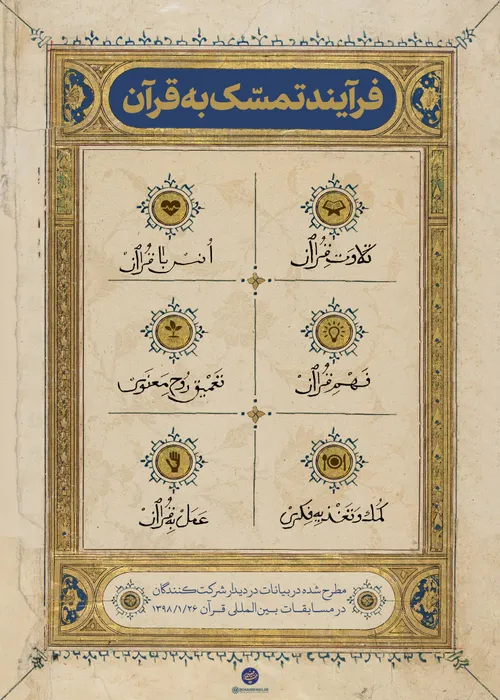 فرآیند تمسّک به قرآن
تلاوت قرآن
اُنس با قرآن
فهم قرآن
تعمیق روح معنوی
کمک و تغذیه فکری
عمل به قرآن
مطرح شده در بیانات در دیدار شرکت‌کنندگان
در مسابقات بین‌المللی قرآن ۱۳۹۸/۱/۲۶